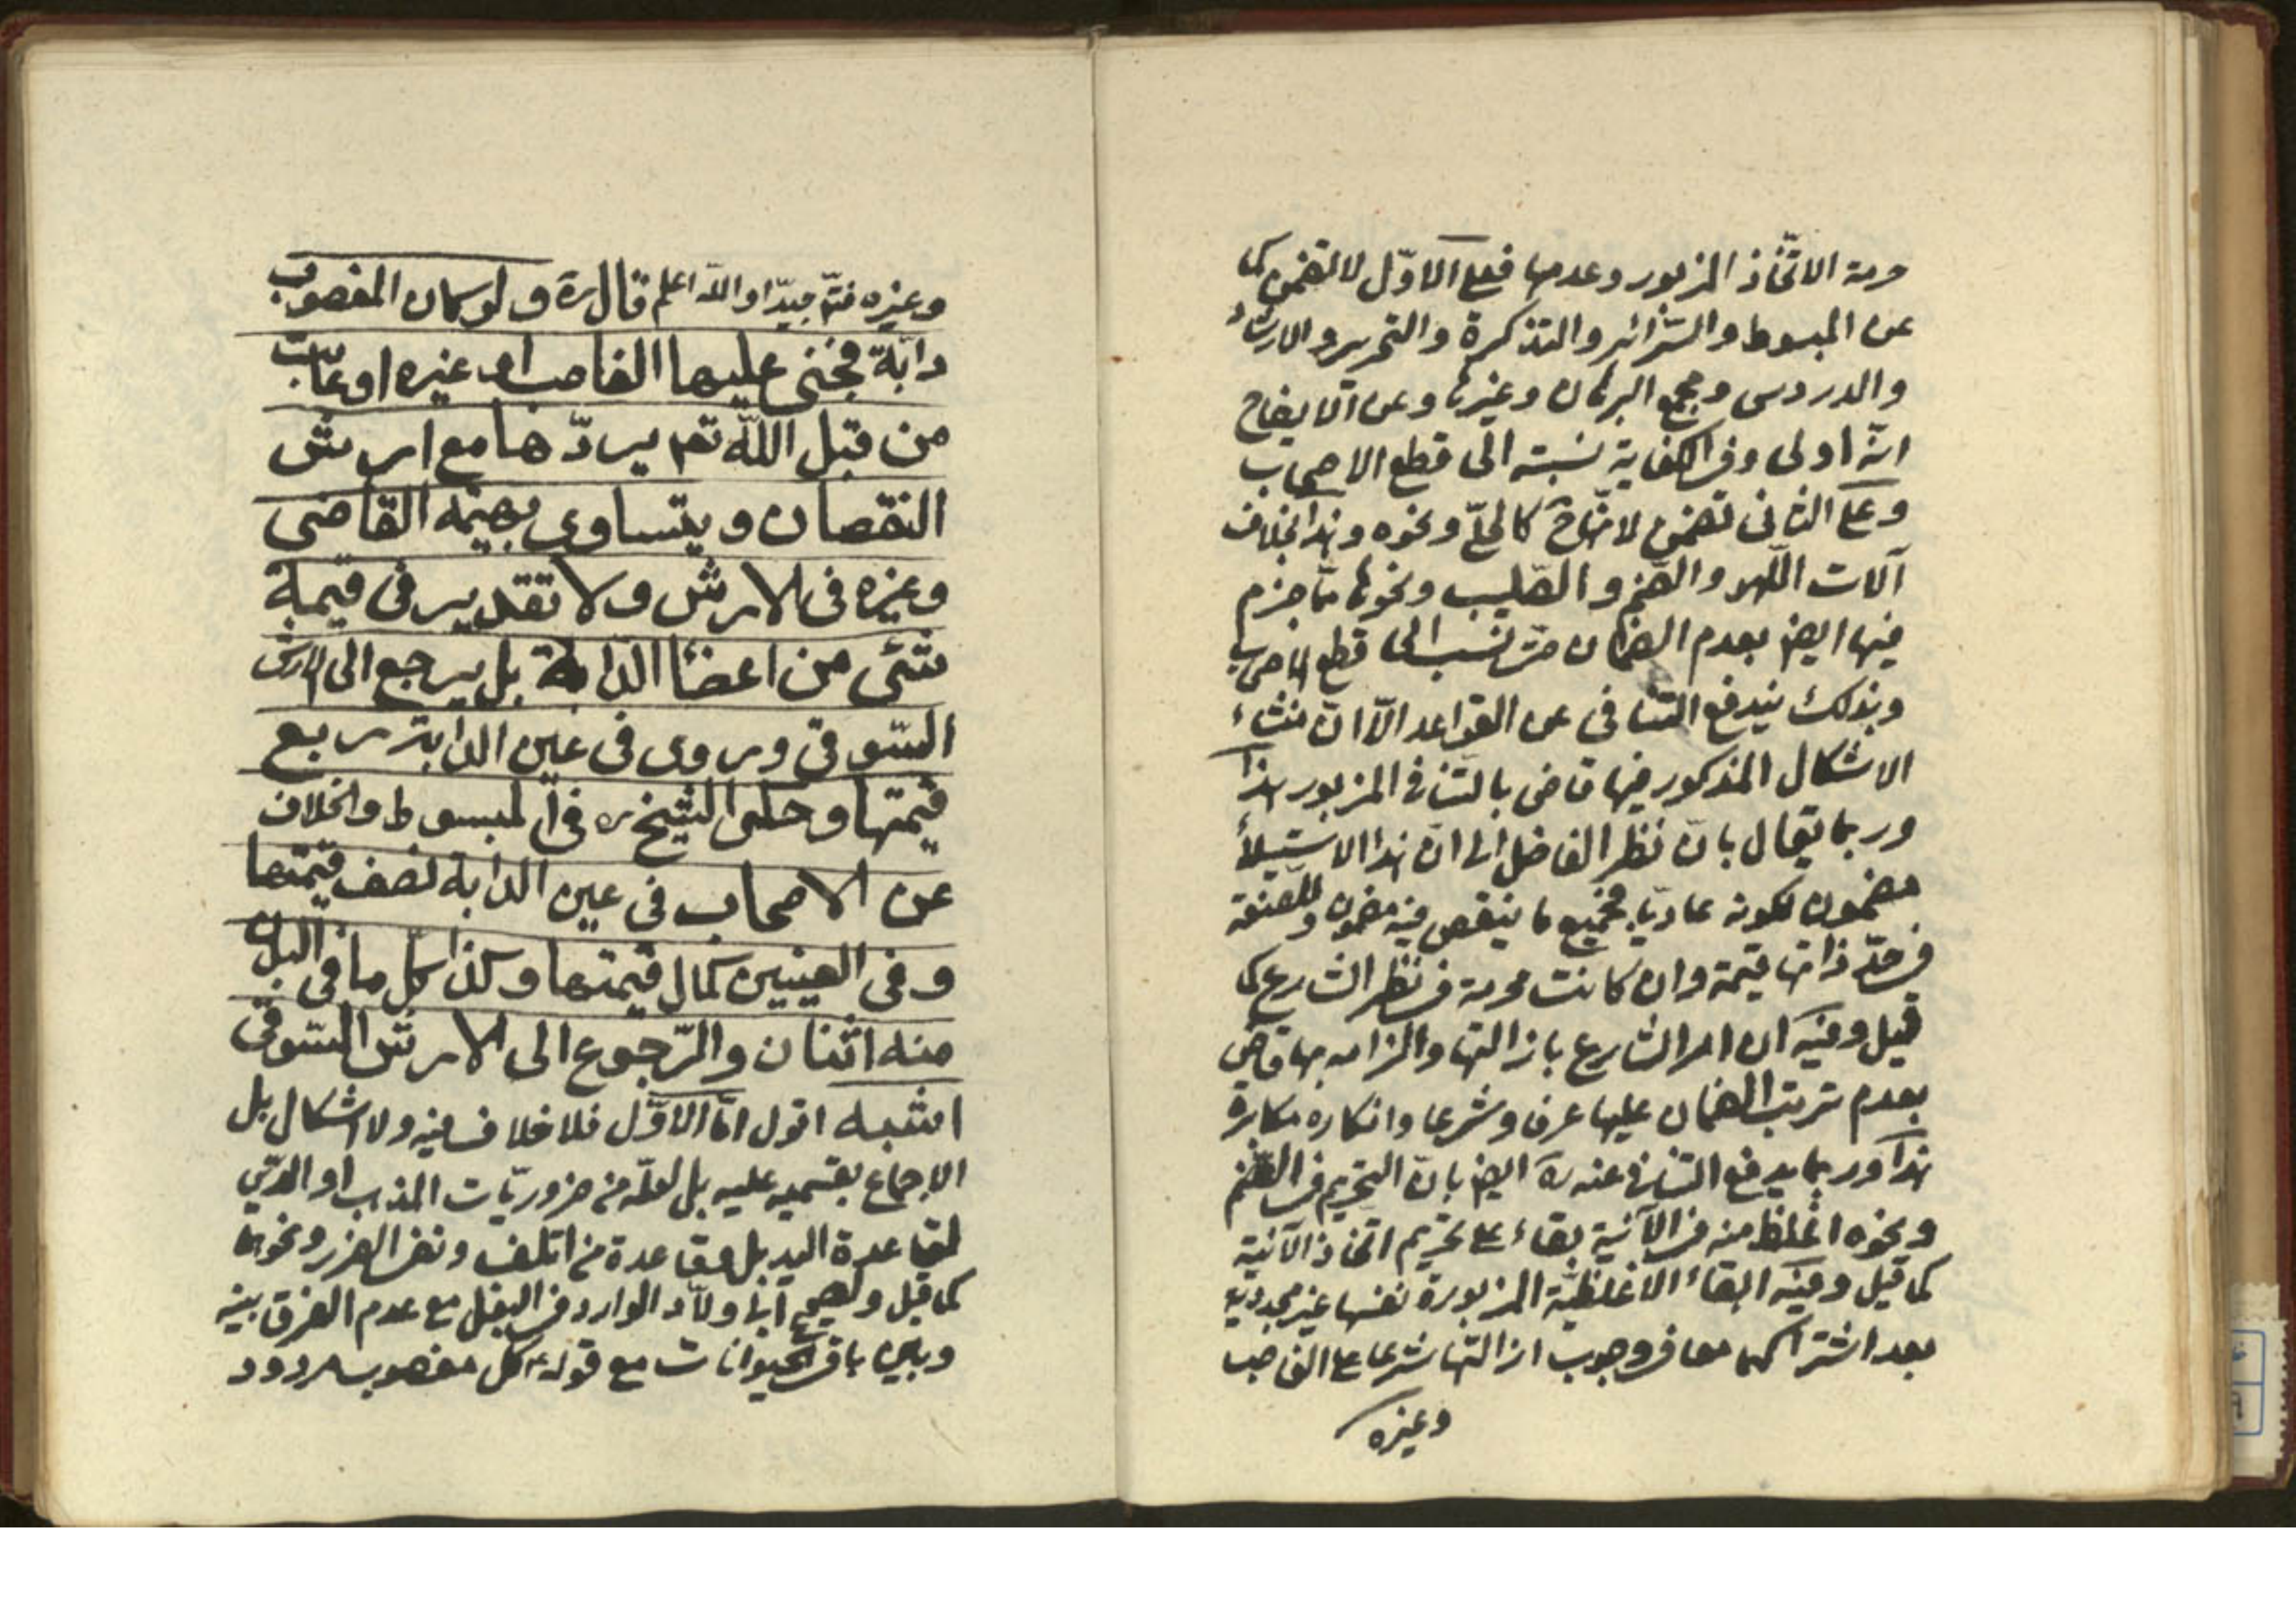 حرمة الاتّخاذ المزبور وعدمها فعلى الاوّل لا تضمن كما
عن المبسوط والسّرائر والتذكرة والتحرير والارشاد
والدروس ومجمع البرهان وغيرها وعن الايضاح
انّه اولى وفى الكفاية نسبته الى قطع الاصحاب
وعلى الثانى تضمن لاحترامها كالحلّي ونحوه وهذا بخلاف
آلات اللّهو والصّنم والصّليب ونحوها ممّا جزم
فيها ايضا بعدم الضمان حتّى نسب الى قطع الاصحاب
وبذلك يندفع التّنافى عن القواعد الّا انّ منشاء
الاشكال المذكور فيها قاض بالتّنافى المزبور هذا
وربما يقال بانّ نظر الفاضل الى انّ هذا الاستيلاء
مضمون لكونه عاديّا فجميع ما ينقص فيه مضمون وللصّنعة
فى حدّ ذاتها قيمة وان كانت محرمة فى نظر الشارع كما
قيل وفيه ان امر الشارع بازالتها والزامه بها قاض
بعدم ترتب الضمان عليها عرفا وشرعا وانكاره مكابرة
هذا وربما يدفع التنافى عنه ره ايضا بانّ التحريم فى الصّنم
ونحوه اغلظ منه فى الآنية بقاء على تحريم اتخاذ الآنية
كما قيل وفيه ابقاء الاغلظيّة المزبورة نفسها غير مجدية
بعد اشتراكهما معا فى وجوب ازالتها شرعا على الغاصب
وغيره
وغيره فتدبّر جيدّا واللّه اعلم قال ره ولو كان المغصوب
دابّة فجنى عليها الغاصب او غيره او عابت
من قبل اللّه تعه يردّها مع ارش
النقصان ويتساوى بهيمة القاضى
وغيره فى الارش ولا تقدير فى قيمة
شئى من اعضاء الدّابة بل يرجع الى الارش
السّوقى وروى فى عين الدابة ربع
قيمتها وحكى الشيخ ره فى المبسوط والخلاف
عن الاصحاب فى عين الدابة نصف قيمتها
وفى العينين كمال قيمتها وكذا كل ما فى البدن
منه اثنان والرّجوع الى الارش السّوقى
اشبه اقول امّا الاوّل فلا خلاف فيه ولا اشكال بل
الاجماع بقسميه عليه بل لعلّه من ضروريّات المذهب او الدّين
لقاعدة اليد بل وقاعدة من اتلف ونفى الضرر ونحوها
كما قيل ولصحيح ابى ولاّد الوارد فى البغل مع عدم الفرق بينه
وبين باقى الحيوانات مع قوله ع كل مغصوب مردود